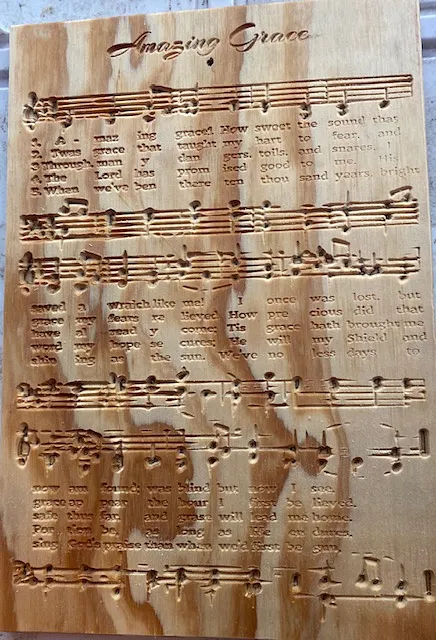 Amazing Grace
1. A - maz ing grace! How sweet the sound that
2. Twas grace that taught my hart to fear, and
3 Through, man y dan gers, toils, and snares, I
4. The Lord has prom ised good to me. His
5. When we've ben there ten thou sand years, bright
saved a Wraich like me! I once was lost, but
grace my fears re lieved. How pre cious did that
have al read y come; Tis grace hath brought me
word my hope se cures; He will my Shield and
shin ing as the sun. We've no less days to
now am found; was blind but now I see.
grace ap pear the hour I first be lieved.
safe thus far and grase will lead me home.
Por tion be, as long as life en dures.
sing God's praise than when we'd first be gun.